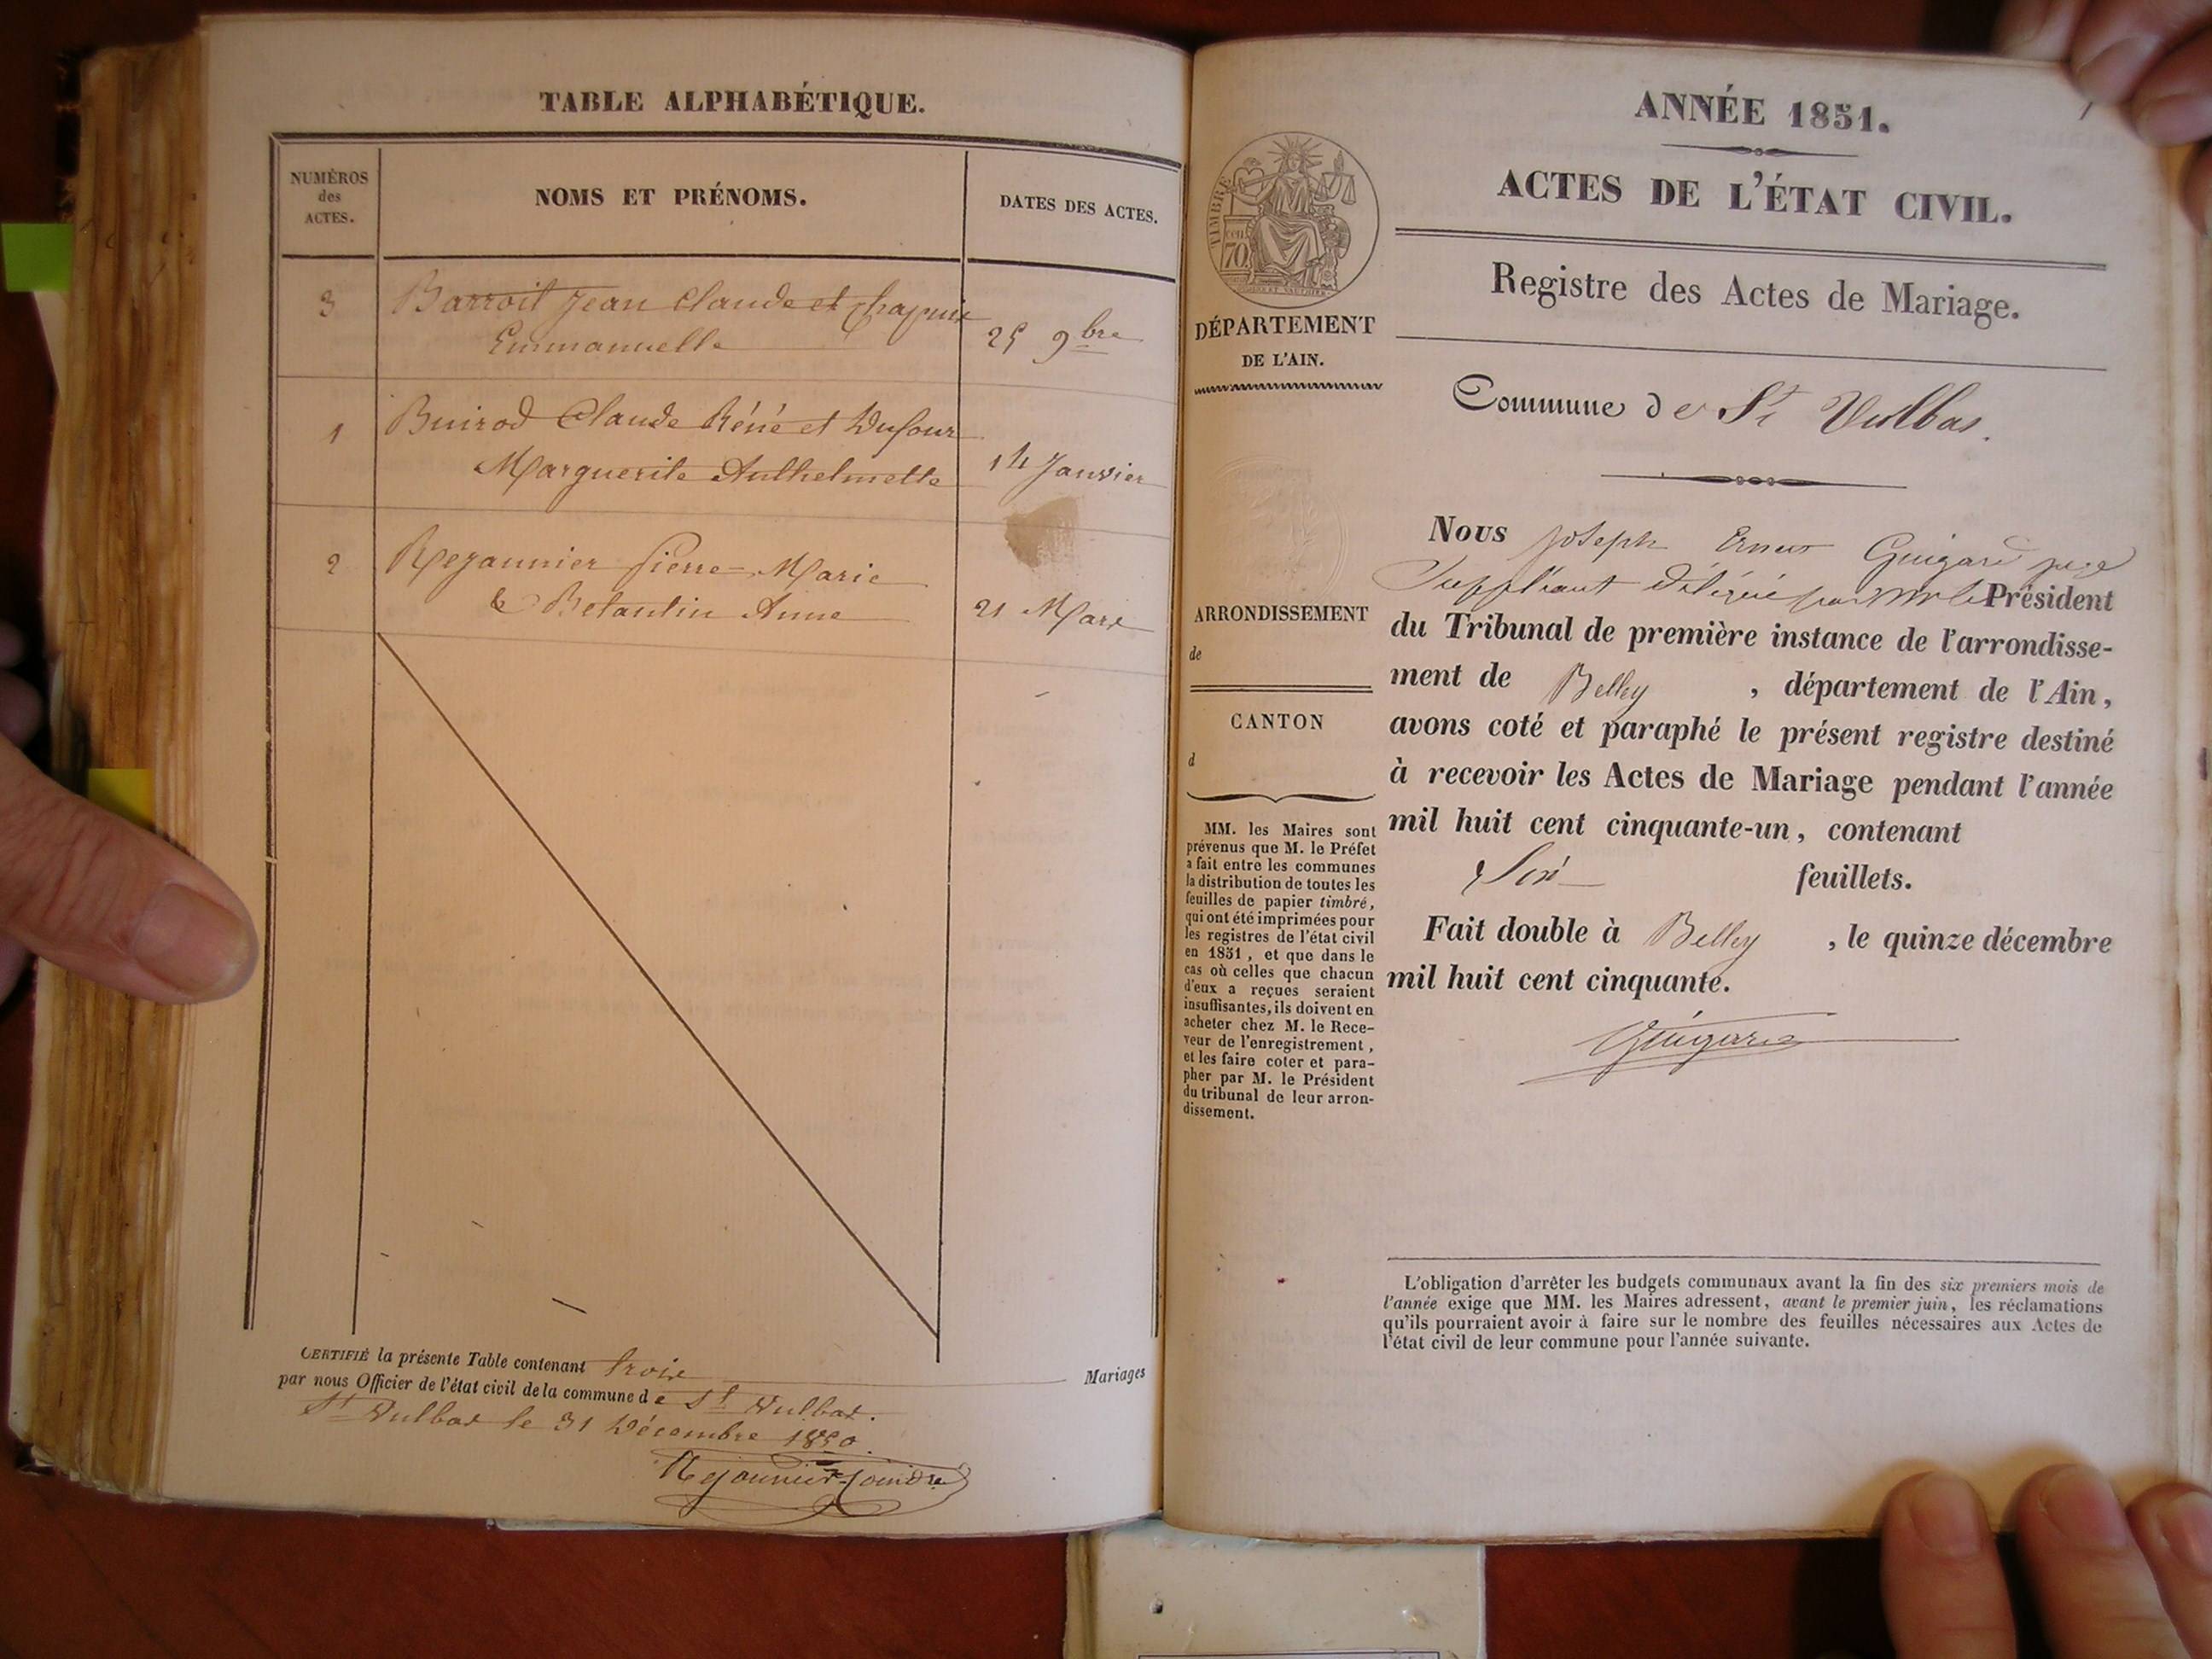 TABLE ALPHABÉTIQUE.
NUMÉROS
des
ACTES.
NOMS ET PRÉNOMS.
DATES DES ACTES.
3
Barroit Jean Claude et Chapuis
Emmanuelle
25 9bre
1
Buirod Claude Réné et Dufour
Marguerite Anthelmette
14 Janvier
2
Rejaunier Pierre-Marie
& Betantin Anne
21 Mars
CERTIFIÉ la présente Table contenant trois Mariages
par nous Officier de l'état civil de la commune de St Vulbas.
St Vulbas le 31 Décembre 1850.
ANNÉE 1851.
ACTES DE L'ÉTAT CIVIL.
Registre des Actes de Mariage.
TIMBRE
70
DÉPARTEMENT
DE L'AIN.
Commune de St Vulbas.
ARRONDISSEMENT
de
CANTON
d
MM. les Maires sont
prévenus que M. le Préfet
a fait entre les communes
la distribution de toutes les
feuilles de papier timbré,
qui ont été imprimées pour
les registres de l'état civil
en 1851, et que dans le
cas où celles que chacun
d'eux a reçues seraient
insuffisantes, ils doivent en
acheter chez M. le Rece-
veur de l'enregistrement,
et les faire coter et para-
pher par M. le Président
du tribunal de leur arron-
dissement.
Nous Joseph Guigard juge
Suppléant délégué par Mr le Président
du Tribunal de première instance de l'arrondisse-
ment de Belley, département de l'Ain,
avons coté et paraphé le présent registre destiné
à recevoir les Actes de Mariage pendant l'année
mil huit cent cinquante-un, contenant
Six feuillets.
Fait double à Belley, le quinze décembre
mil huit cent cinquante.
Guigard
L'obligation d'arrêter les budgets communaux avant la fin des six premiers mois de
l'année exige que MM. les Maires adressent, avant le premier juin, les réclamations
qu'ils pourraient avoir à faire sur le nombre des feuilles nécessaires aux Actes de
l'état civil de leur commune pour l'année suivante.